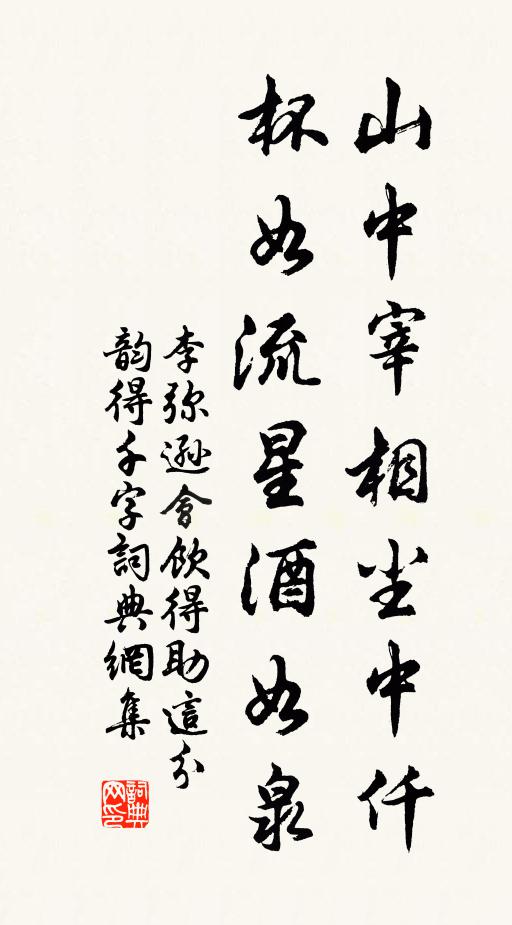 山中宰相尘中仟
杯如流星酒如泉
李弥遜會飲得助這分
韵得千字詞典網集
詞典网印